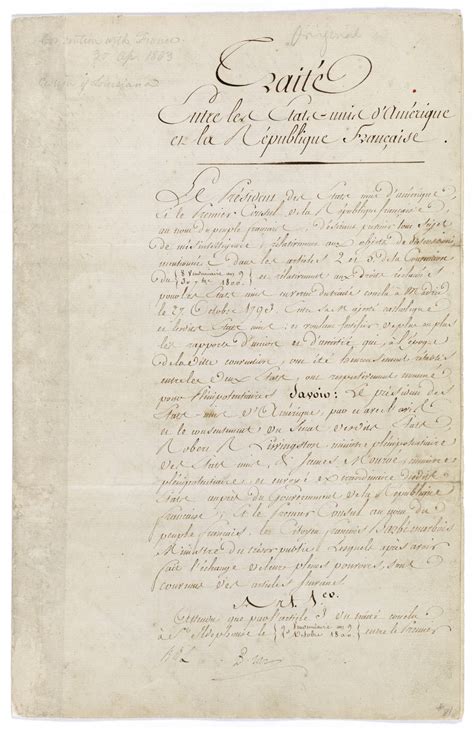 Convention with France
30 Ap. 1803
Original
Traité
Entre les Etats-unis d'Amérique
et la République Française.
Le Président des Etats unis d'amérique
et le Premier Consul de la République française
au nom du peuple français desirant prévenir tout sujet
de mésintelligence relativement aux objets de discussion
mentionnés dans les articles 2 et 5 de la Convention
du 8 Vendémiaire an 9
30 7bre 1800
et relativement aux droits réclamés
par les Etats unis en vertu du traité conclu à Madrid
le 27 Octobre 1795 Entre Sa Majesté catholique
et lesdits Etats unis; et voulant fortifier de plus en plus
les rapports d'union et d'amitié, qui à l'époque
de ladite convention, ont été heureusement rétablis
entre les deux Etats, ont respectivement nommé
pour Plénipotentiaires Savoir: Le président des
Etats-unis d'Amérique, par et avec l'avis
et le consentement du Sénat desdits Etats
Robert R Livingston ministre plénipotentiaire
des Etats unis, & James Monroe, ministre
plénipotentiaire et envoyé extraordinaire desdits
Etats auprès du Gouvernement de la République
française; Et le premier Consul au nom du
peuple français, le Citoyen français Barbé marbois
Ministre du trésor public Lesquels après avoir
fait l'échange de leurs pleins pouvoirs, sont
convenus des articles suivants
Art. 1er.
Attendu que par l'article 3 du traité conclu
à St Ildephonse le 9 Vendémiaire an 9
1er Octobre 1800
entre le Premier
RRL